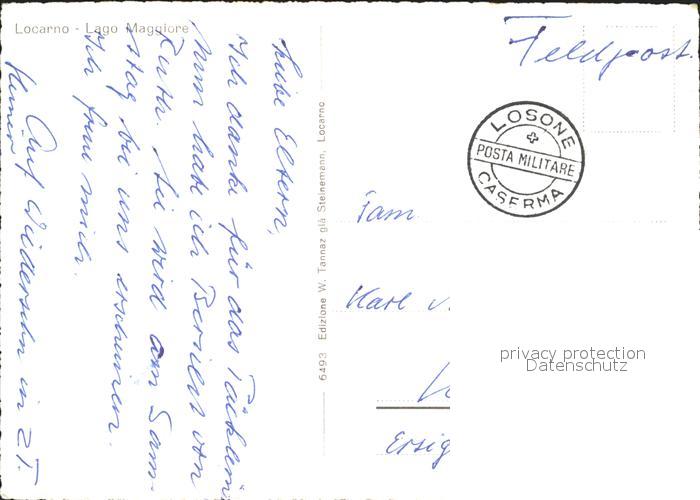 Locarno - Lago Maggiore
Feldpost.
LOSONE
POSTA MILITARE
CASERMA
Liebe Eltern,
Ich danke für das Päcklein
Nun habe ich Bericht von
Ruth. Sie wird am Sam-
stag bei uns erscheinen.
Ich freue mich.
Auf Wiedersehn in ZI.
6493 Edizione W. Tannaz già Steinemann, Locarno
Fam
Karl
Ersig
privacy protection
Datenschutz